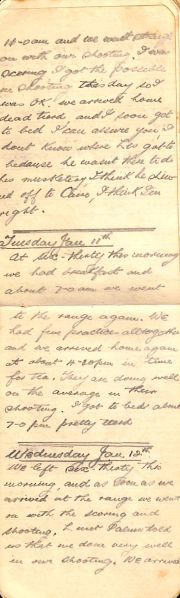 10-0am and we went straight
on with our shooting. I was
scoring I got the possible
in shooting this day so I
was OK. we arrived home
dead tired and I soon got
to bed I can assure you, I
dont know where Les got to
because he wasnt there to do
his musketry I think he slew
ed off to Cairo, I think Im
right.
Tuesday Jan 11th
At six-thirty this morning
we had breakfast and
about 7-0 am we went
to the range again. We
had five practices altogether
and we arrived home again
at about 4-20pm in time
for tea. They are doing well
on the average in their
shooting. I got to bed about
7-0 pm pretty tired
Wednesday Jan 12th
We left six thirty this
morning and as soon as we
arrived at the range we went
on with the scoring and
shooting. L met Palmer told
us that we done very well
in our shooting. We arrived